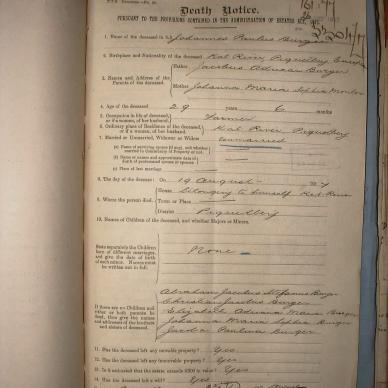 Death Notice.
PURSUANT TO THE PROVISIONS CONTAINED IN THE ADMINISTRATION OF ESTATES ACT,
1. Name of the deceased in full Johannes Paulus Burger
2. Birthplace and Nationality of the deceased Kat River, Piquetberg
3. Names and Address of the Parents of the deceased.
Father Jacobus Adriaan Burger
Mother Johanna Maria Sophia
4. Age of the deceased 29 years 6 months
5. Occupation in life of deceased, or if a woman, of her husband. Farmer
6. Ordinary place of Residence of the deceased or if a woman, of her husband. Kat River, Piquetberg
7. Married or Unmarried, Widower or Widow Unmarried
(a) Name of surviving spouse (if any), and whether married in Community of Property or not
(b) Name or names and approximate date of death of predeceased spouse or spouses
(c) Place of last marriage
8. The day of the decease On 19 August
9. Where the person died.
House belonging to himself Kat River
Town or Place
District Piquetberg
10. Names of Children of the deceased, and whether Majors or Minors.
State separately the Children born of different marriages, and give the date of birth of each minor. Names must be written out in full.
None
If there are no Children and either or both parents be dead, then give the names and addresses of the brothers and sisters of deceased.
Abraham Jacobus Stefanus Burger
Christiaan Jacobus Burger
Elizabeth Adriana Maria Burger
Johanna Maria Sophia Burger
Jacoba Paulina Burger
11. Has the deceased left any movable property? Yes
12. Has the deceased left any immovable property? Yes
13. Is it estimated that the estate exceeds £300 in value? Yes
14. Has the deceased left a will? Yes